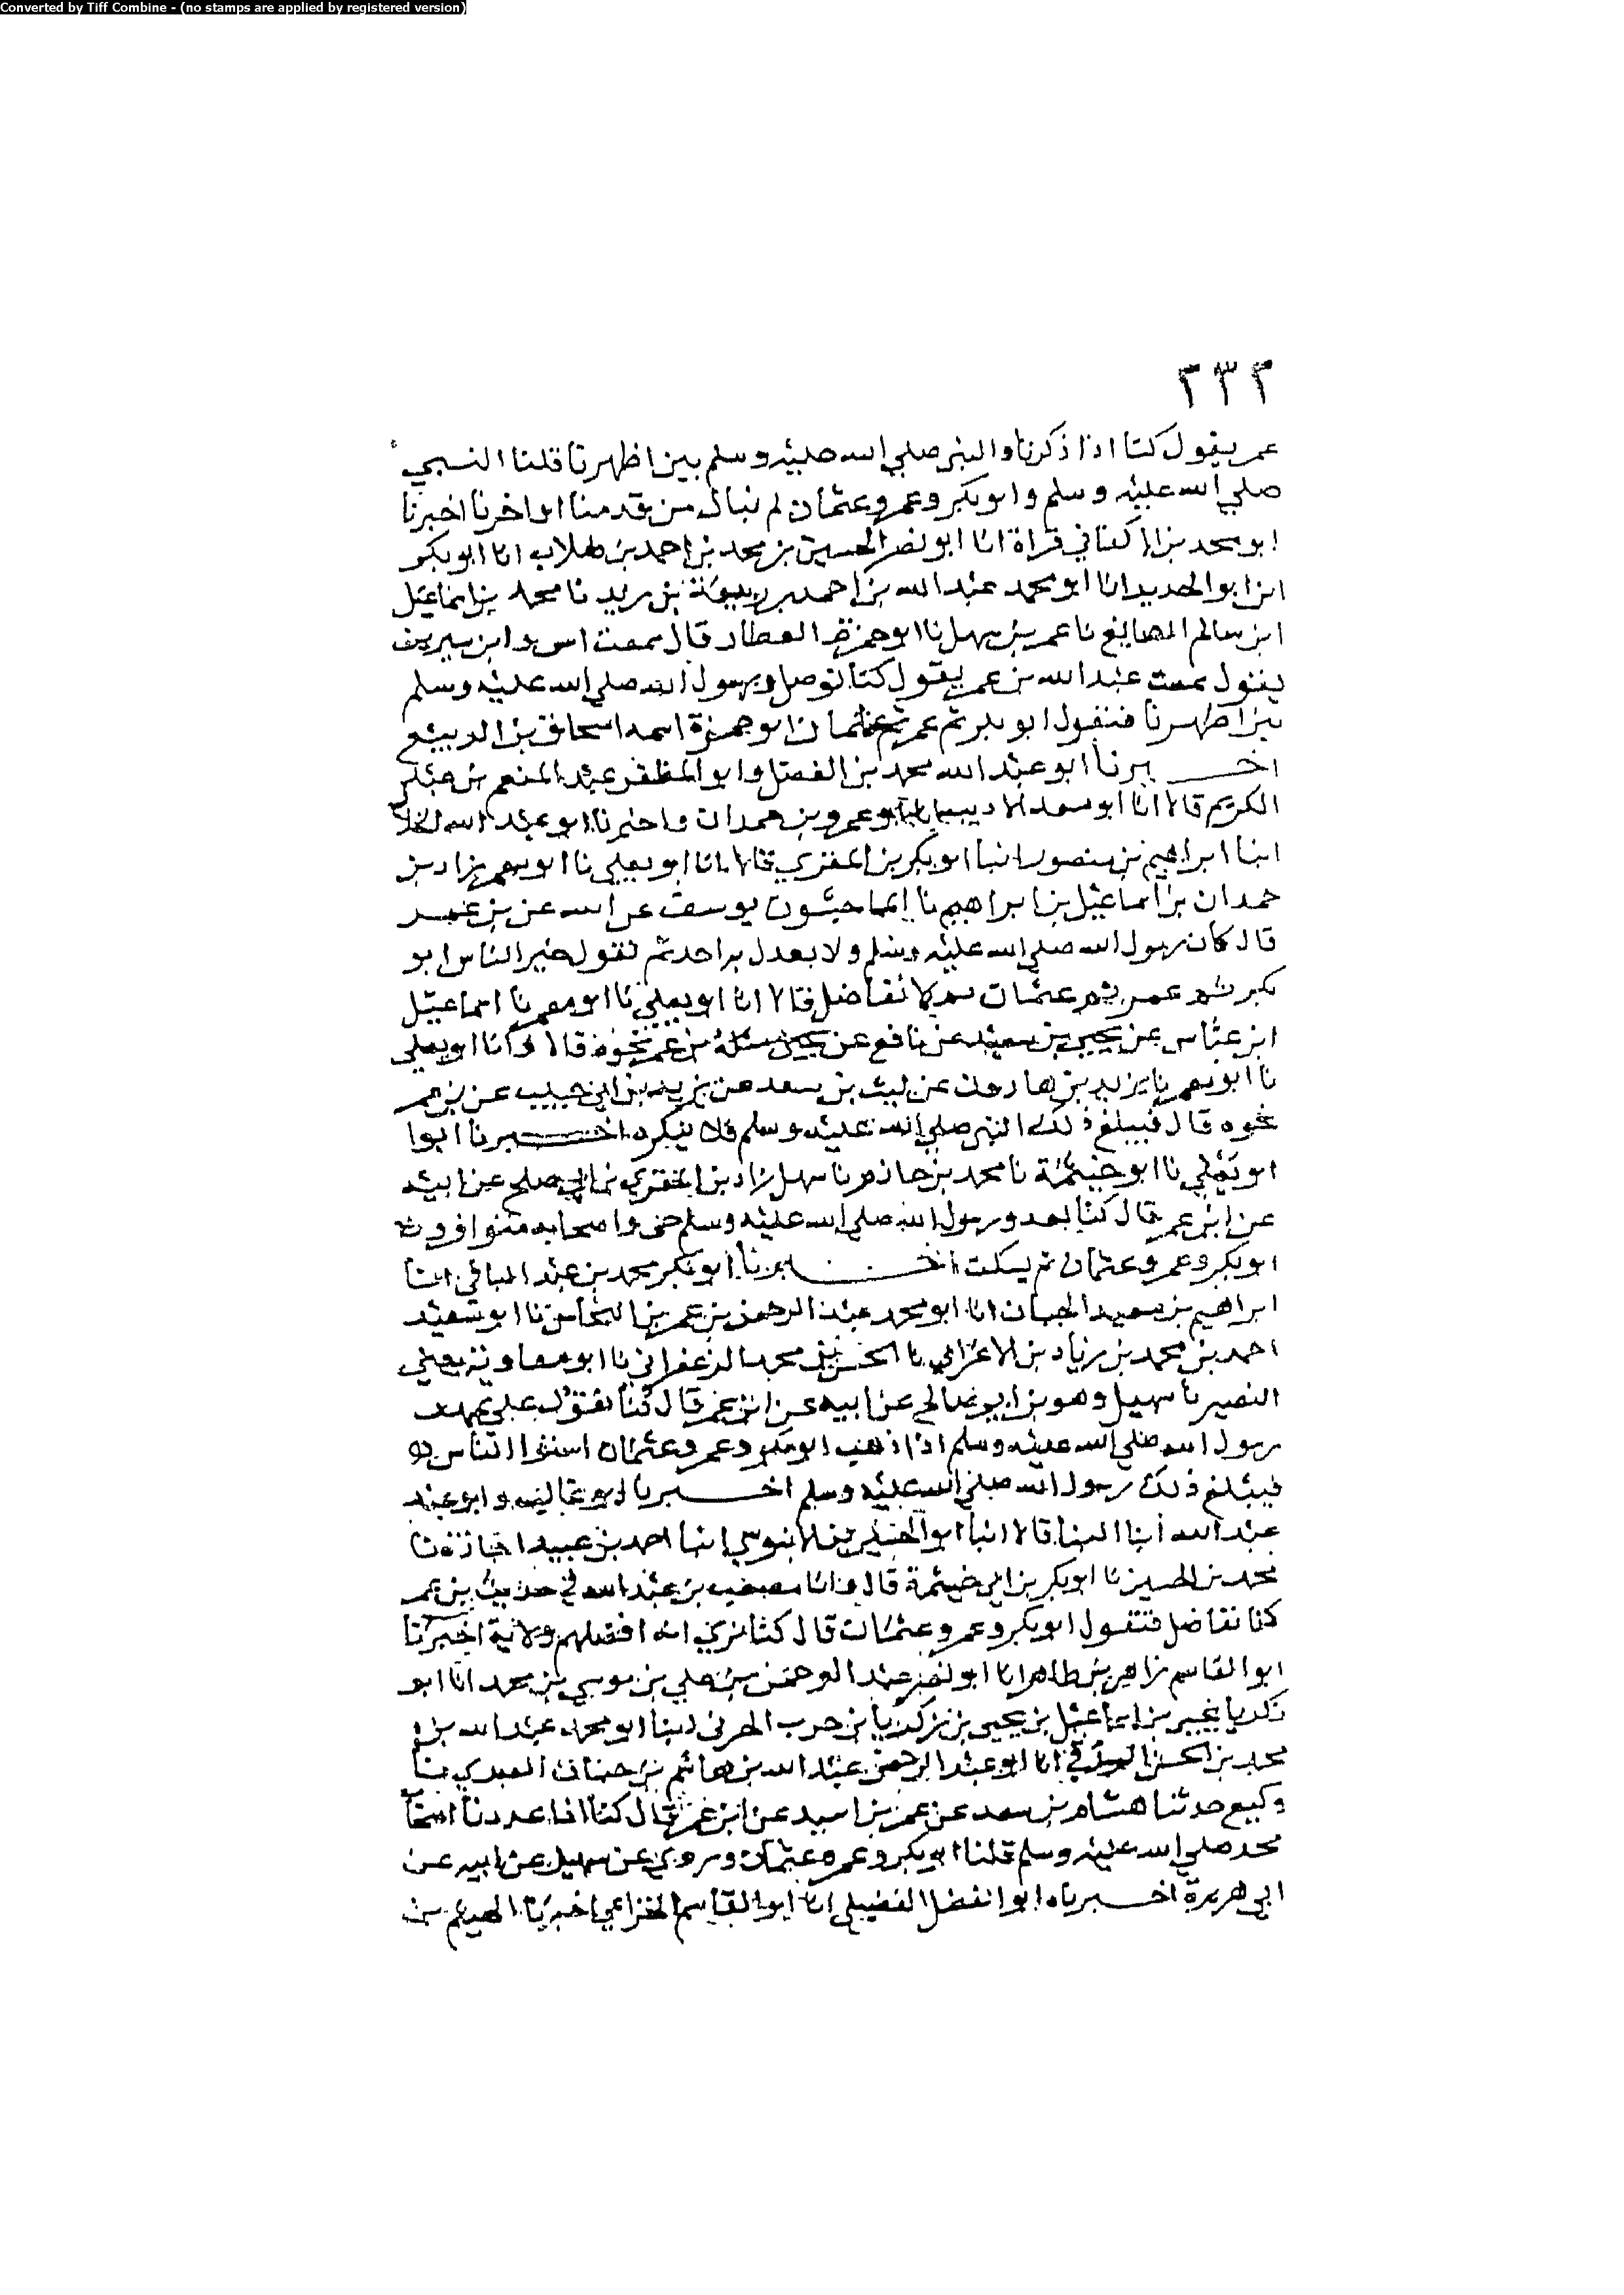 Converted by Tiff Combine - (no stamps are applied by registered version)
٢٣٢
عمر يقول كنا اذا ذكرنا والنبي صلي الله عليه وسلم بين اظهرنا قلنا النبي
صلي الله عليه وسلم وابو بكر وعمر وعثمان لم نبال من قدمنا او اخرنا اخبرنا
ابو محمد بن الاكفاني قراة انا ابو نصر الحسين بن محمد بن احمد بن طلاب انا ابو بكر
ابن ابو الحديد انا ابو محمد عبد الله بن احمد بن ربيعة بن بريد نا محمد بن اسماعيل
ابن سالم الصايغ نا عمر بن سهل نا ابو حمزة العطار قال سمعت ابن سيرين
يقول سمعت عبد الله بن عمر يقول كنا ورسول الله صلي الله عليه وسلم
بين اظهرنا فنقول ابو بكر ثم عمر ثم عثمان ابو حمزة اسمه اسحاق بن الربيع
اخبرنا ابو عبد الله محمد بن الفضل وابو المظفر عبد المنعم بن عبد
الكريم قالا انا ابو سعد الاديب ابو عمرو بن حمدان واخبرنا ابو عبد الله الخلا
انبا ابراهيم بن منصور انبا ابو بكر بن المقري قالا انا ابو يعلي نا ابو معمر زاد بن
حمدان بن اسماعيل بن ابراهيم نا الماجشون يوسف عن بن عمر
قال كان رسول الله صلي الله عليه وسلم ولا يعدل براحد ثم نقول خير الناس ابو
بكر ثم عمر ثم عثمان ثم لا نفاضل قالا انا ابو يعلي نا ابو معمر نا اسماعيل
ابن عباس عن يحيى بن سعيد عن نافع عن بن عمر نحوه قالا وانا ابو يعلي
نا ابو معمر نا يزيد بن هارون عن ليث بن سعد عن يزيد بن ابي حبيب عن بن عمر
نحوه قال فيبلغ ذلك النبي صلي الله عليه وسلم فلا ينكره اخبرنا ابوا
ابو يعلي نا ابو خيثمة نا محمد بن حازم نا سهل زاد بن المقري بن ابي صلح عن ابيه
عن ابن عمر قال كنا نعد ورسول الله صلي الله عليه وسلم حي واصحابه متوافرون
ابو بكر وعمر وعثمان ثم يسكت اخبرنا ابو بكر محمد بن عبد الباقي انبا
ابراهيم بن سعيد الحبان انا ابو محمد عبد الرحمن بن عمر بن النحاس نا ابو سعيد
احمد بن محمد بن زياد بن الاعرابي نا الحسن بن محمد الزعفراني نا ابو معاوية يعني
النصير نا سهيل وهو بن ابي صالح عن ابيه عن ابن عمر قال كنا نقول علي عهد
رسول الله صلي الله عليه وسلم اذا ذهب ابو بكر وعمر وعثمان استوا الناس
فيبلغ ذلك رسول الله صلي الله عليه وسلم اخبرنا ابو غالب وابو عبد
عبد الله ابنا البنا قالا انبا ابو الحسين بن الابنوسي انبا احمد بن عبيد اجازة نا
محمد بن الحسين نا ابو بكر بن ابي خيثمة قال وانا مصعب بن عبد الله في حديث بن عمر
كنا نفاضل فنقول ابو بكر وعمر وعثمان قال كنا نري انه افضلهم ولاية اخبرنا
ابو القاسم زاهر بن طاهر انا ابو نصر عبد الرحمن بن علي بن موسي بن محمد انا ابو
زكريا يحيى بن اسماعيل بن يحيى بن زكريا بن حرب الحربي ابو محمد عبد الله بن
محمد بن الحسن الشرقي انا ابو عبد الرحمن عبد الله بن هاشم بن حنان العبدي نا
وكيع حدثنا هشام بن سعد عن عمر بن اسيد عن ابن عمر قال كنا اذا عددنا اصحاب
محمد صلي الله عليه وسلم قلنا ابو بكر وعمر وعثمان وروي عن سهيل عن ابيه عن
ابي هريرة اخبرناه ابو الفضل الفضيلي انا ابو القاسم الخزاعي اخبرنا الهيثم بن